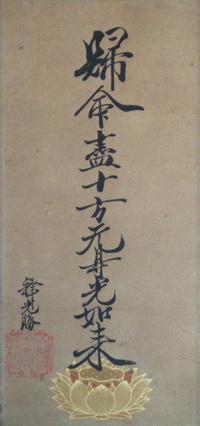 歸命盡十方无㝵光如来
釋光勝